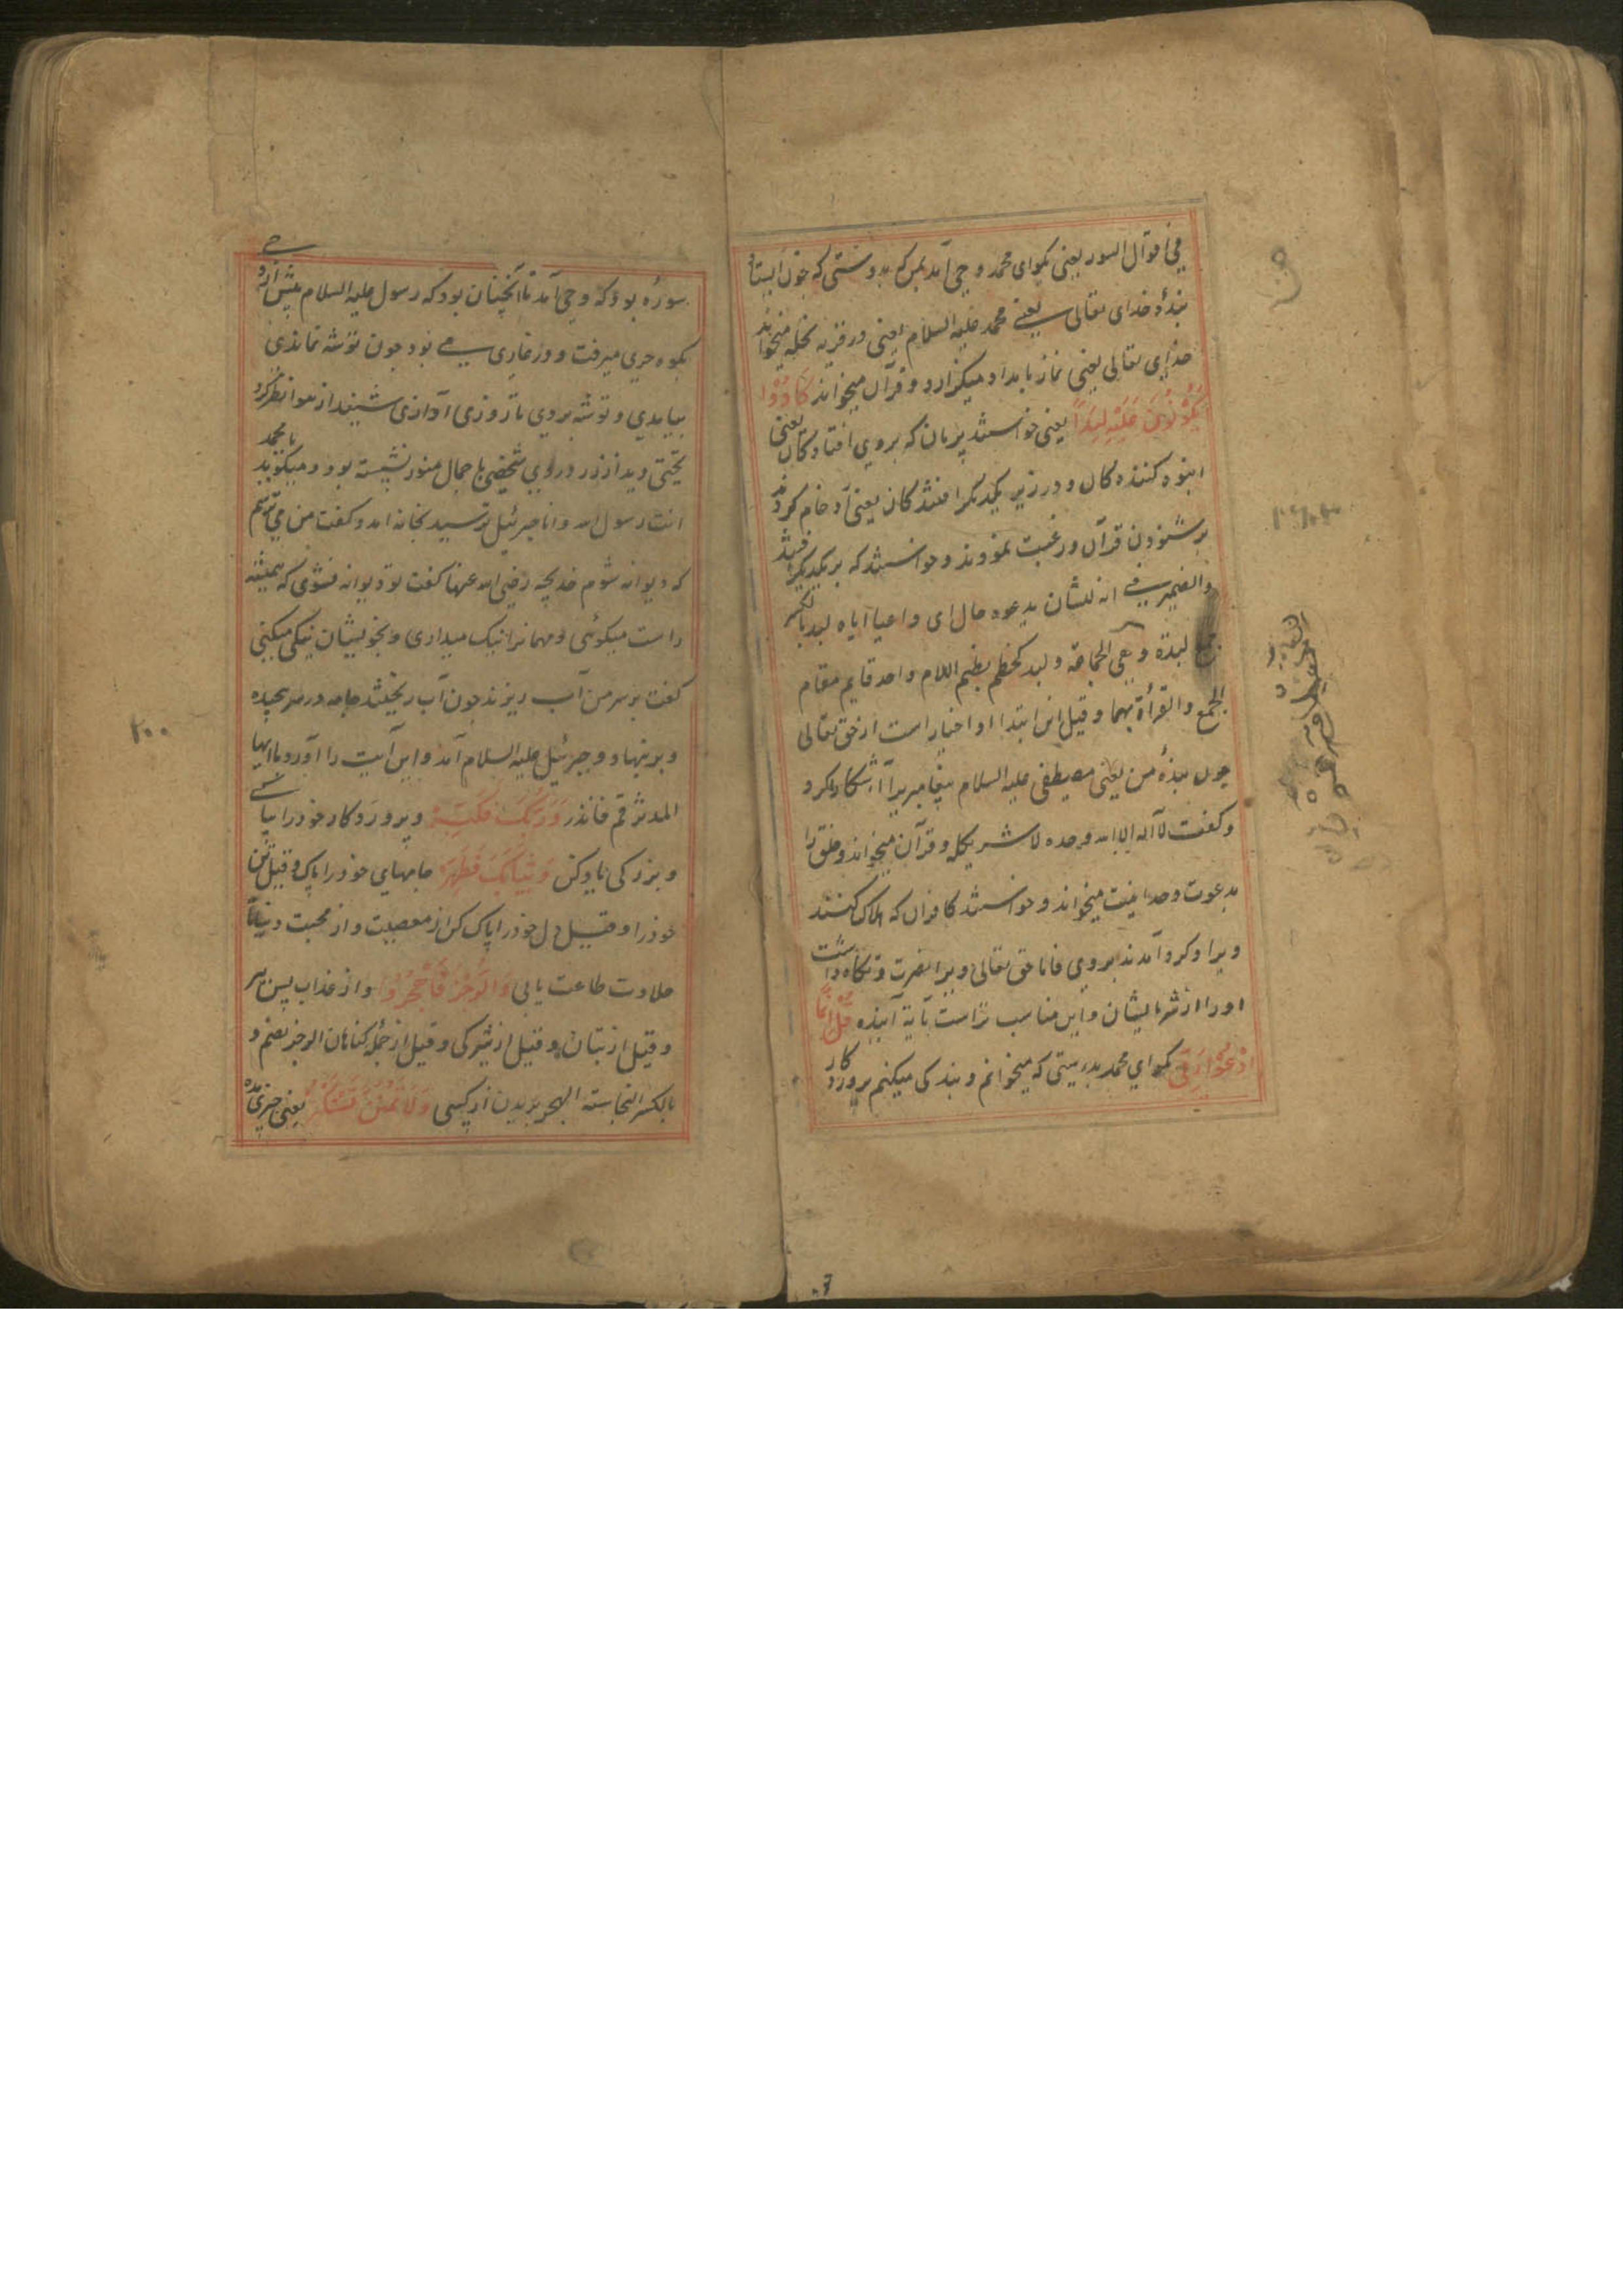 في أقوال السور يعني بگو ای محمد وحی آمد بمن که بدرستی که چون ایستاد
بندهٔ خدای تعالی یعنے محمد علیه السلام یعنی در قریه نخله میخواند
خدای تعالی یعنی نماز بامداد میگزارد و قرآن میخواند كَادُوْا
يَكُوْنُونَ عَلَيْهِ لِبَدًا یعنی خواستند پریان که بروی افتادگان یعنی
انبوه کننده کان و در زیر یکدیگر افتندگان یعنی ازدحام کردند
بر شنودن قرآن و رغبت نمودند و خواستند که بر یکدیگر افتند
والضمیر فے انه للشان یدعوه حال ای داعیا ایاه لبد بالکسر
جمع لبدة وهی الجماعة و لبد کحطم بضم اللام واحد قایم مقام
الجمع والقرأة بهما وقیل این ابتدا او اخبار است از حق تعالی
چون بندهٔ من یعنی مصطفی علیه السلام پیغامبری را آشکارا کرد
و گفت لا آله الا الله وحده لا شریک له و قرآن میخواند و خلق را
بدعوت وحدانیت میخواند و خواستند کافران که هلاک کنند
ویرا و گرد آمدند بروی فاما حق تعالی ویرا نصرت و نگاه داشت
او را از شر ایشان و این مناسب تر است بآیة آینده قُلْ اِنَّمَا
اَدْعُوْا رَبِّیْ بگو ای محمد بدرستی که میخوانم و بندگی میکنم پروردکار
سوره بود که وحی آمد تا آنچنان بود که رسول علیه السلام پیش ازو
بکوه حری میرفت و در غاری مے بود چون توشه نماندی
بیامدی و توشه بردی تا روزی آوازی شنید از هوا نظر کرد
تختی دید از زر و بروی شخصی با جمال منور نشسته بود و میگوید یا محمد
انت رسول الله وانا جبرئیل ترسید بخانه امد و گفت من می ترسم
که دیوانه شوم خدیجه رضی الله عنها گفت تو دیوانه نشوی که همیشه
راست میگوئی و مهمانرا نیک میداری و بخویشان نیکی میکنی
گفت بر سر من آب ریزند چون آب ریختند جامه در سر پیچیده
و جبرئیل علیه السلام آمد و این آیت را آورد یا ایها
المدثر قم فانذر وَرَبَّكَ فَكَبِّرْ و پروردکار خود را بیا
و بزرگی یاد کن وَثِيَابَكَ فَطَهِّرْ جامهای خود را پاک و قیل تن
خود را و قیل دل خود را پاک کن از معصیت و از محبت دنیا تا
حلاوت طاعت یابی وَالرُّجْزَ فَاهْجُرْ و از عذاب پس ببر
و قیل از بتان و قیل از شرکی و قیل از جمله گناهان الرجز بضم و
بالکسر النجاسته الهجر بریدن از کسی وَلَا تَمْنُنْ تَسْتَكْثِرُ یعنی چیزی مده
۲۰۰